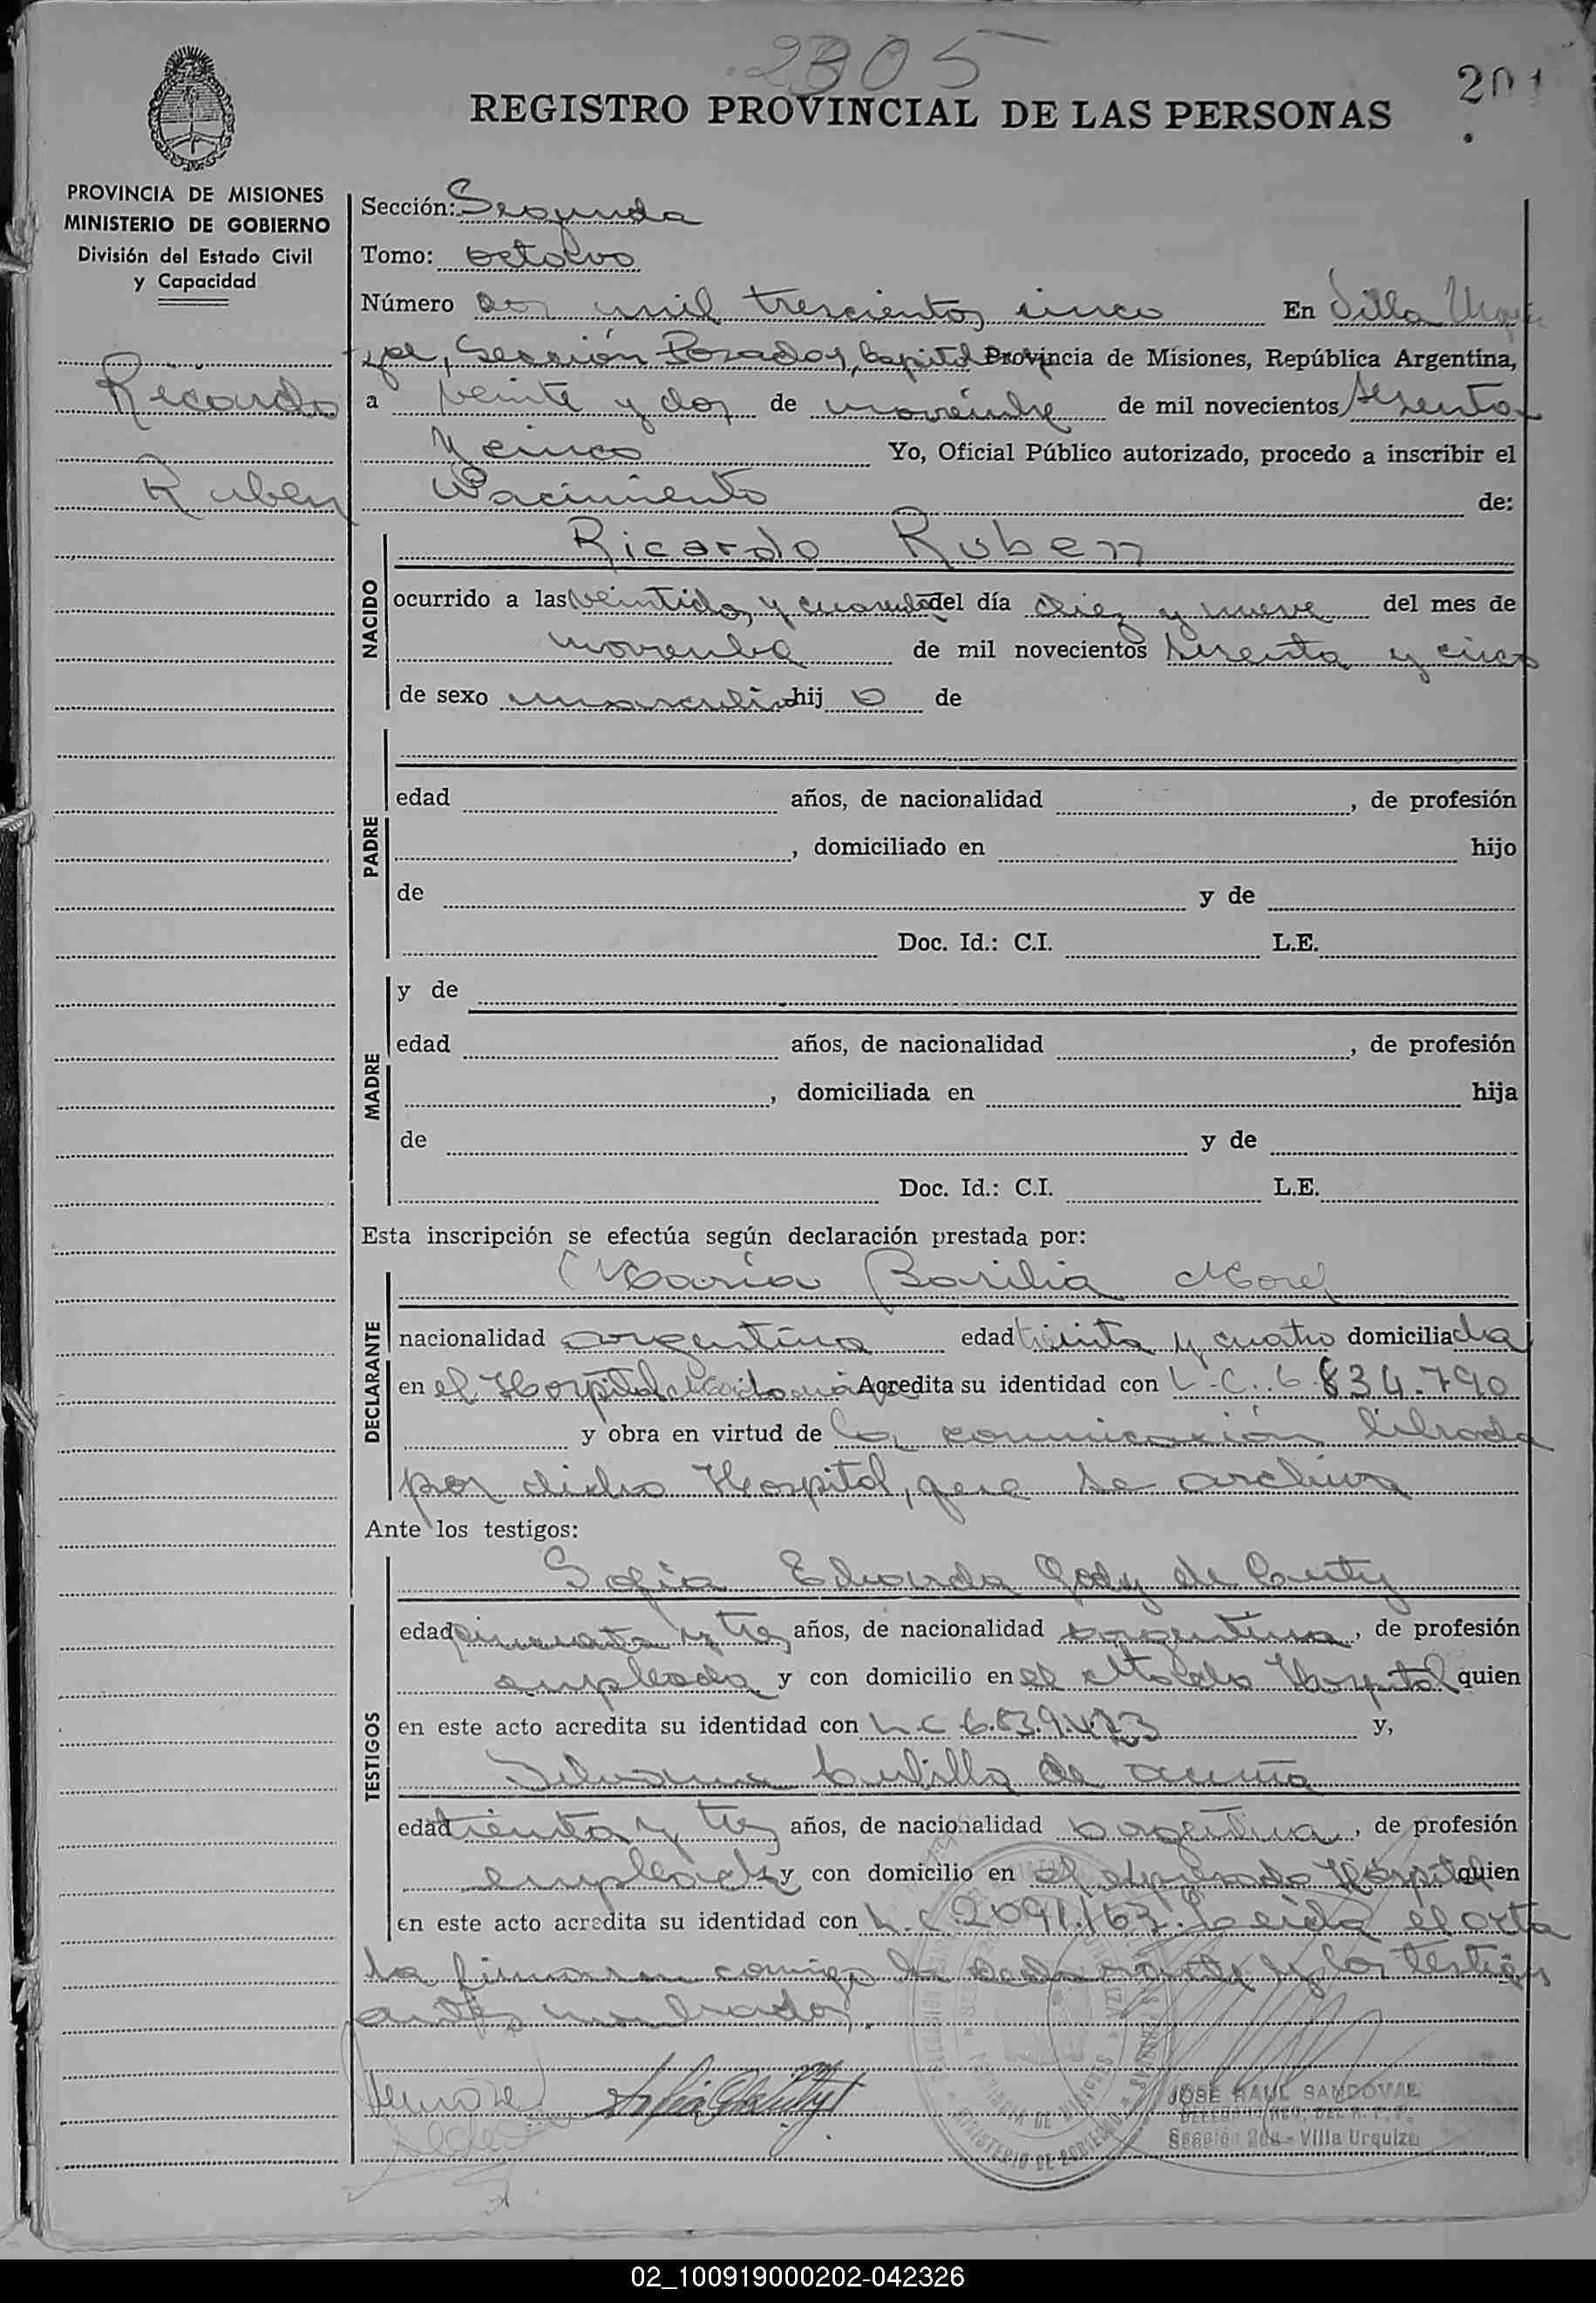 2305
201
REGISTRO PROVINCIAL DE LAS PERSONAS
PROVINCIA DE MISIONES
MINISTERIO DE GOBIERNO
División del Estado Civil
y Capacidad
Ricardo
Ruben
Sección: Segunda
Tomo: octavo
Número dos mil trescientos cinco En Villa Urqui
za, Sección Posadas, Capital Provincia de Misiones, República Argentina,
a veinte y dos de noviembre de mil novecientos sesenta
y cinco Yo, Oficial Público autorizado, procedo a inscribir el
Nacimiento de:
NACIDO
Ricardo Ruben
ocurrido a las veintidos y cuarenta del día diez y nueve del mes de
noviembre de mil novecientos sesenta y cinco
de sexo masculino hij o de
PADRE
edad años, de nacionalidad , de profesión
, domiciliado en hijo
de y de
Doc. Id.: C.I. L.E.
MADRE
y de
edad años, de nacionalidad , de profesión
, domiciliada en hija
de y de
Doc. Id.: C.I. L.E.
Esta inscripción se efectúa según declaración prestada por:
DECLARANTE
María Basilia Morel
nacionalidad argentina edad treinta y cuatro domiciliada
en el Hospital Acredita su identidad con L.C. 6.834.790
y obra en virtud de la comunicación librada
por dicho Hospital, que se archiva
Ante los testigos:
TESTIGOS
Sofia Eduarda Gody de
edad cincuenta y tres años, de nacionalidad argentina, de profesión
empleada y con domicilio en el citado Hospital quien
en este acto acredita su identidad con L.C 6.839.423 y,
de acuña
edad treinta y tres años, de nacionalidad argentina, de profesión
empleada y con domicilio en el expresado Hospital quien
en este acto acredita su identidad con L.C. 2091.163. Leida el acta
la firmaron conmigo la declarante y los testigos
antes nombrados.
JOSE RAUL SANDOVAL
Sección 2da - Villa Urquiza
02_100919000202-042326